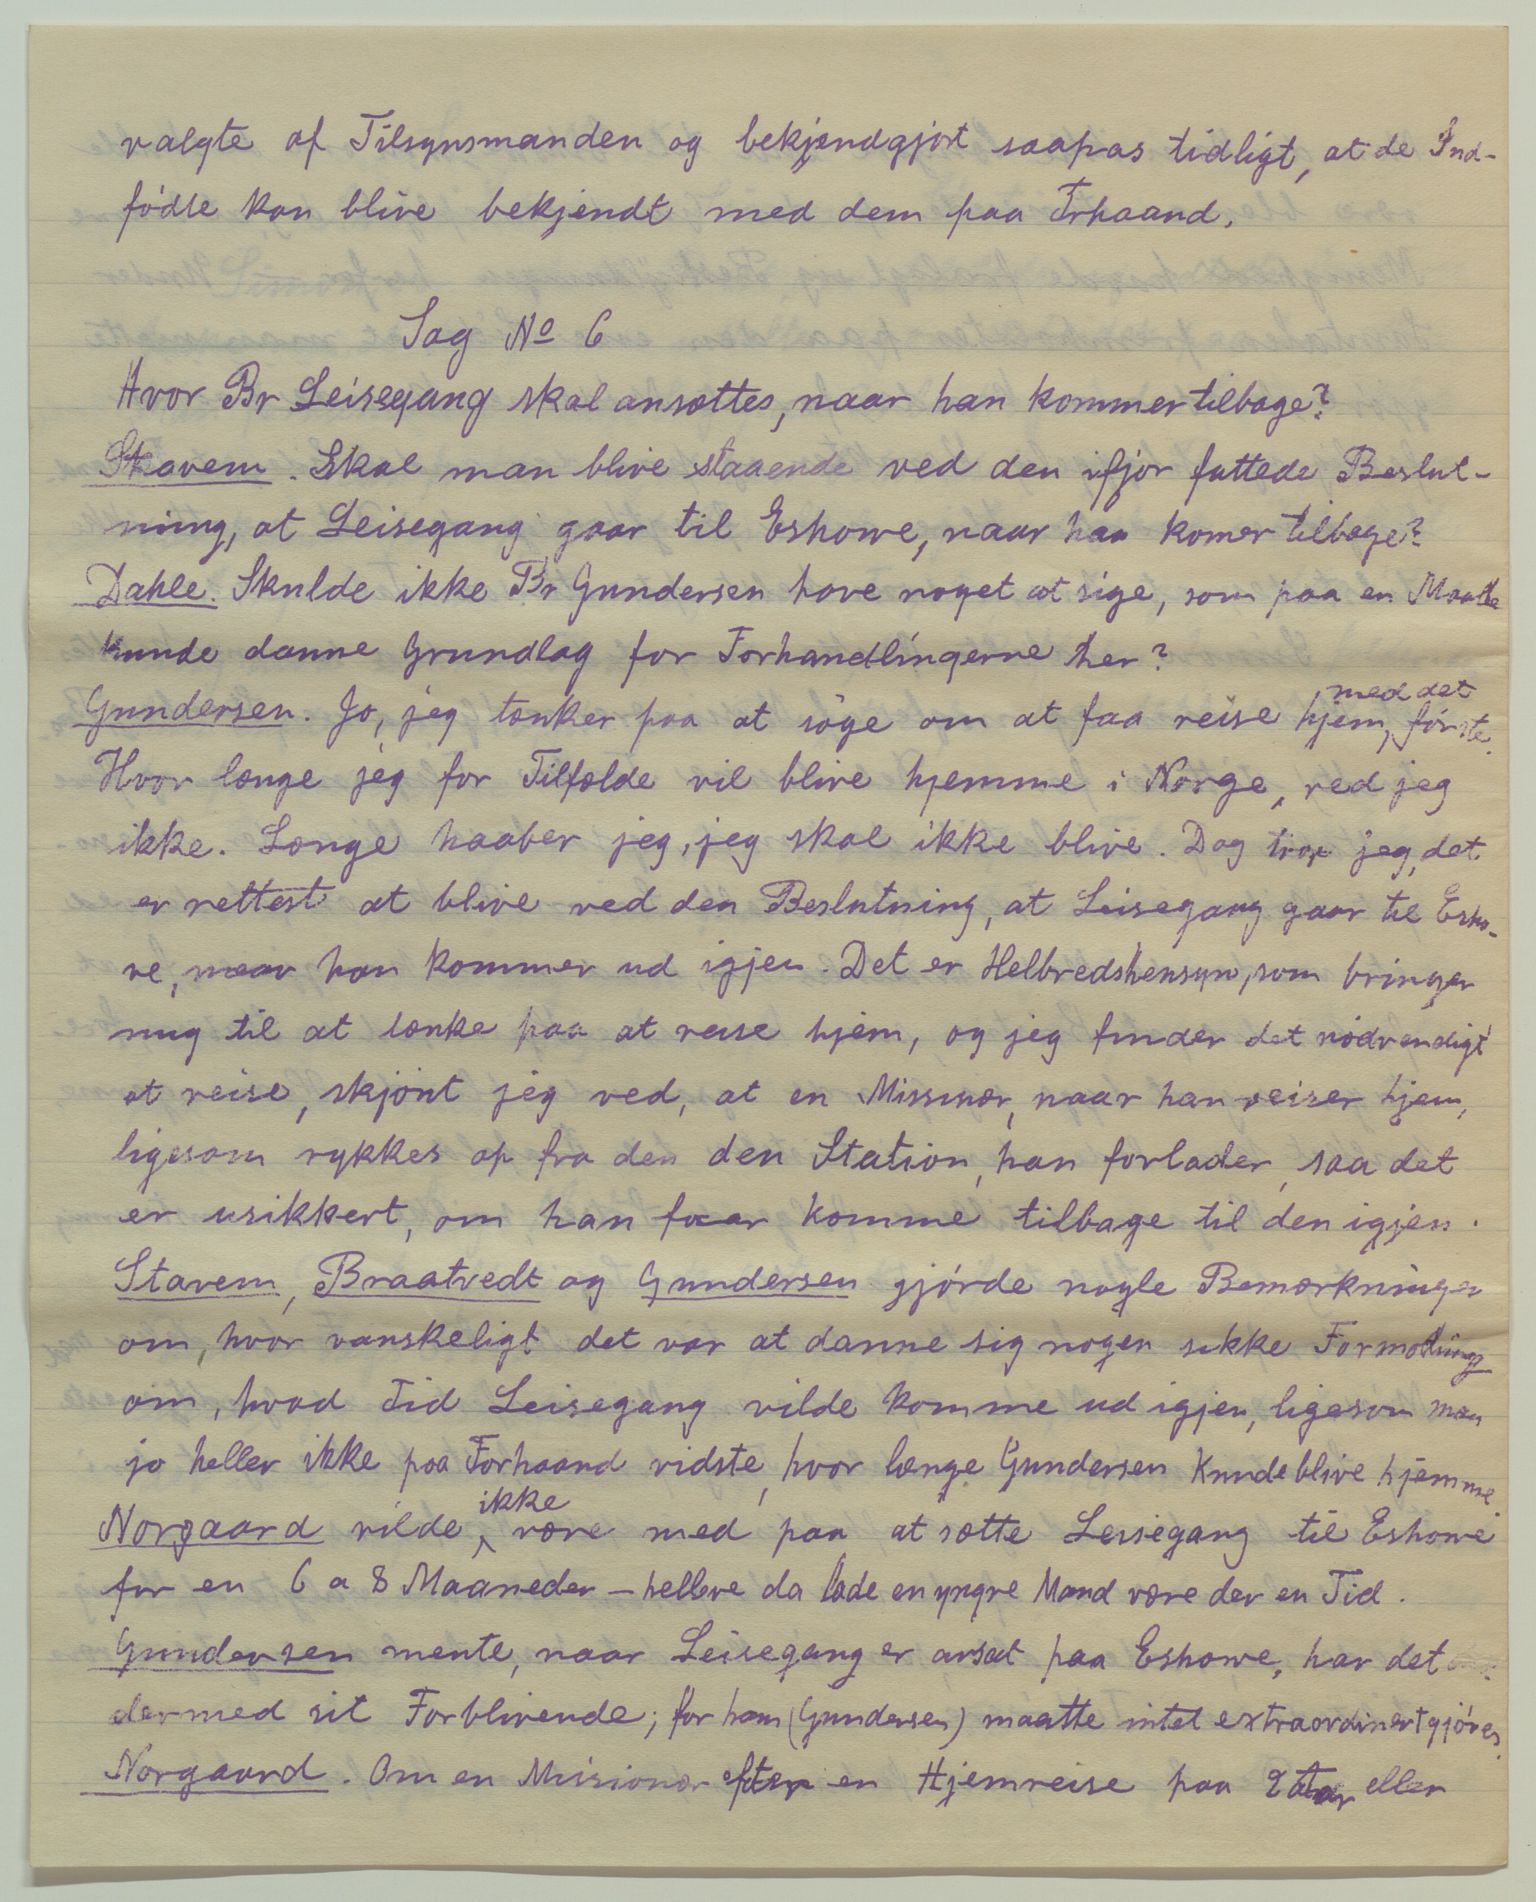 valgte af Tilsynsmanden og bekjendgjort saapas tidligt, at de Ind-
fødte kan blive bekjendt med dem paa Frhaand.
Sag No 6
Hvor Br Leisegang skal ansættes, naar han kommer tilbage?
Stavem. Skal man blive staaende ved den ifjor fattede Beslut-
ning, at Leisegang gaar til Eshowe, naar han komer tilbage?
Dahle. Skulde ikke Br Gundersen have noget at sige, som paa en Maade
kunde danne Grundlag for Forhandlingerne her?
Gundersen. Jo, jeg tænker paa at søge om at faa reise hjem, med det første.
Hvor længe jeg for Tilfælde vil blive hjemme i Norge, ved jeg
ikke. Længe haaber jeg, jeg skal ikke blive. Dog tror jeg, det
er rettest at blive ved den Beslutning, at Leisegang gaar til Esho-
we, naar han kommer ud igjen. Det er Helbredshensyn, som bringer
mig til at tænke paa at reise hjem, og jeg finder det nødvendigt
at reise, skjønt jeg ved, at en Missinær, naar han reiser hjem,
ligesom rykkes op fra den den Station, han forlader, saa det
er usikkert, om han faar komme tilbage til den igjen.
Stavem, Braatvedt og Gundersen gjørde nogle Bemærkninger
om, hvor vanskeligt det var at danne sig nogen sikke Formodning
om, hvad Tid Leisegang vilde komme ud igjen, ligesom man
jo heller ikke paa Forhaand vidste, hvor længe Gundersen kunde blive hjemme.
Norgaard vilde ikke være med paa at sætte Leisegang til Eshowe
for en 6 a 8 Maaneder – hellere da lade en yngre Mand være der en Tid.
Gundersen mente, naar Leisegang er ansat paa Eshowe, har det
dermed sit Forblivende; for ham (Gundersen) maatte intet extraordinert gjøres.
Norgaard. Om en Misionær efter en Hjemreise paa 2 Aar eller